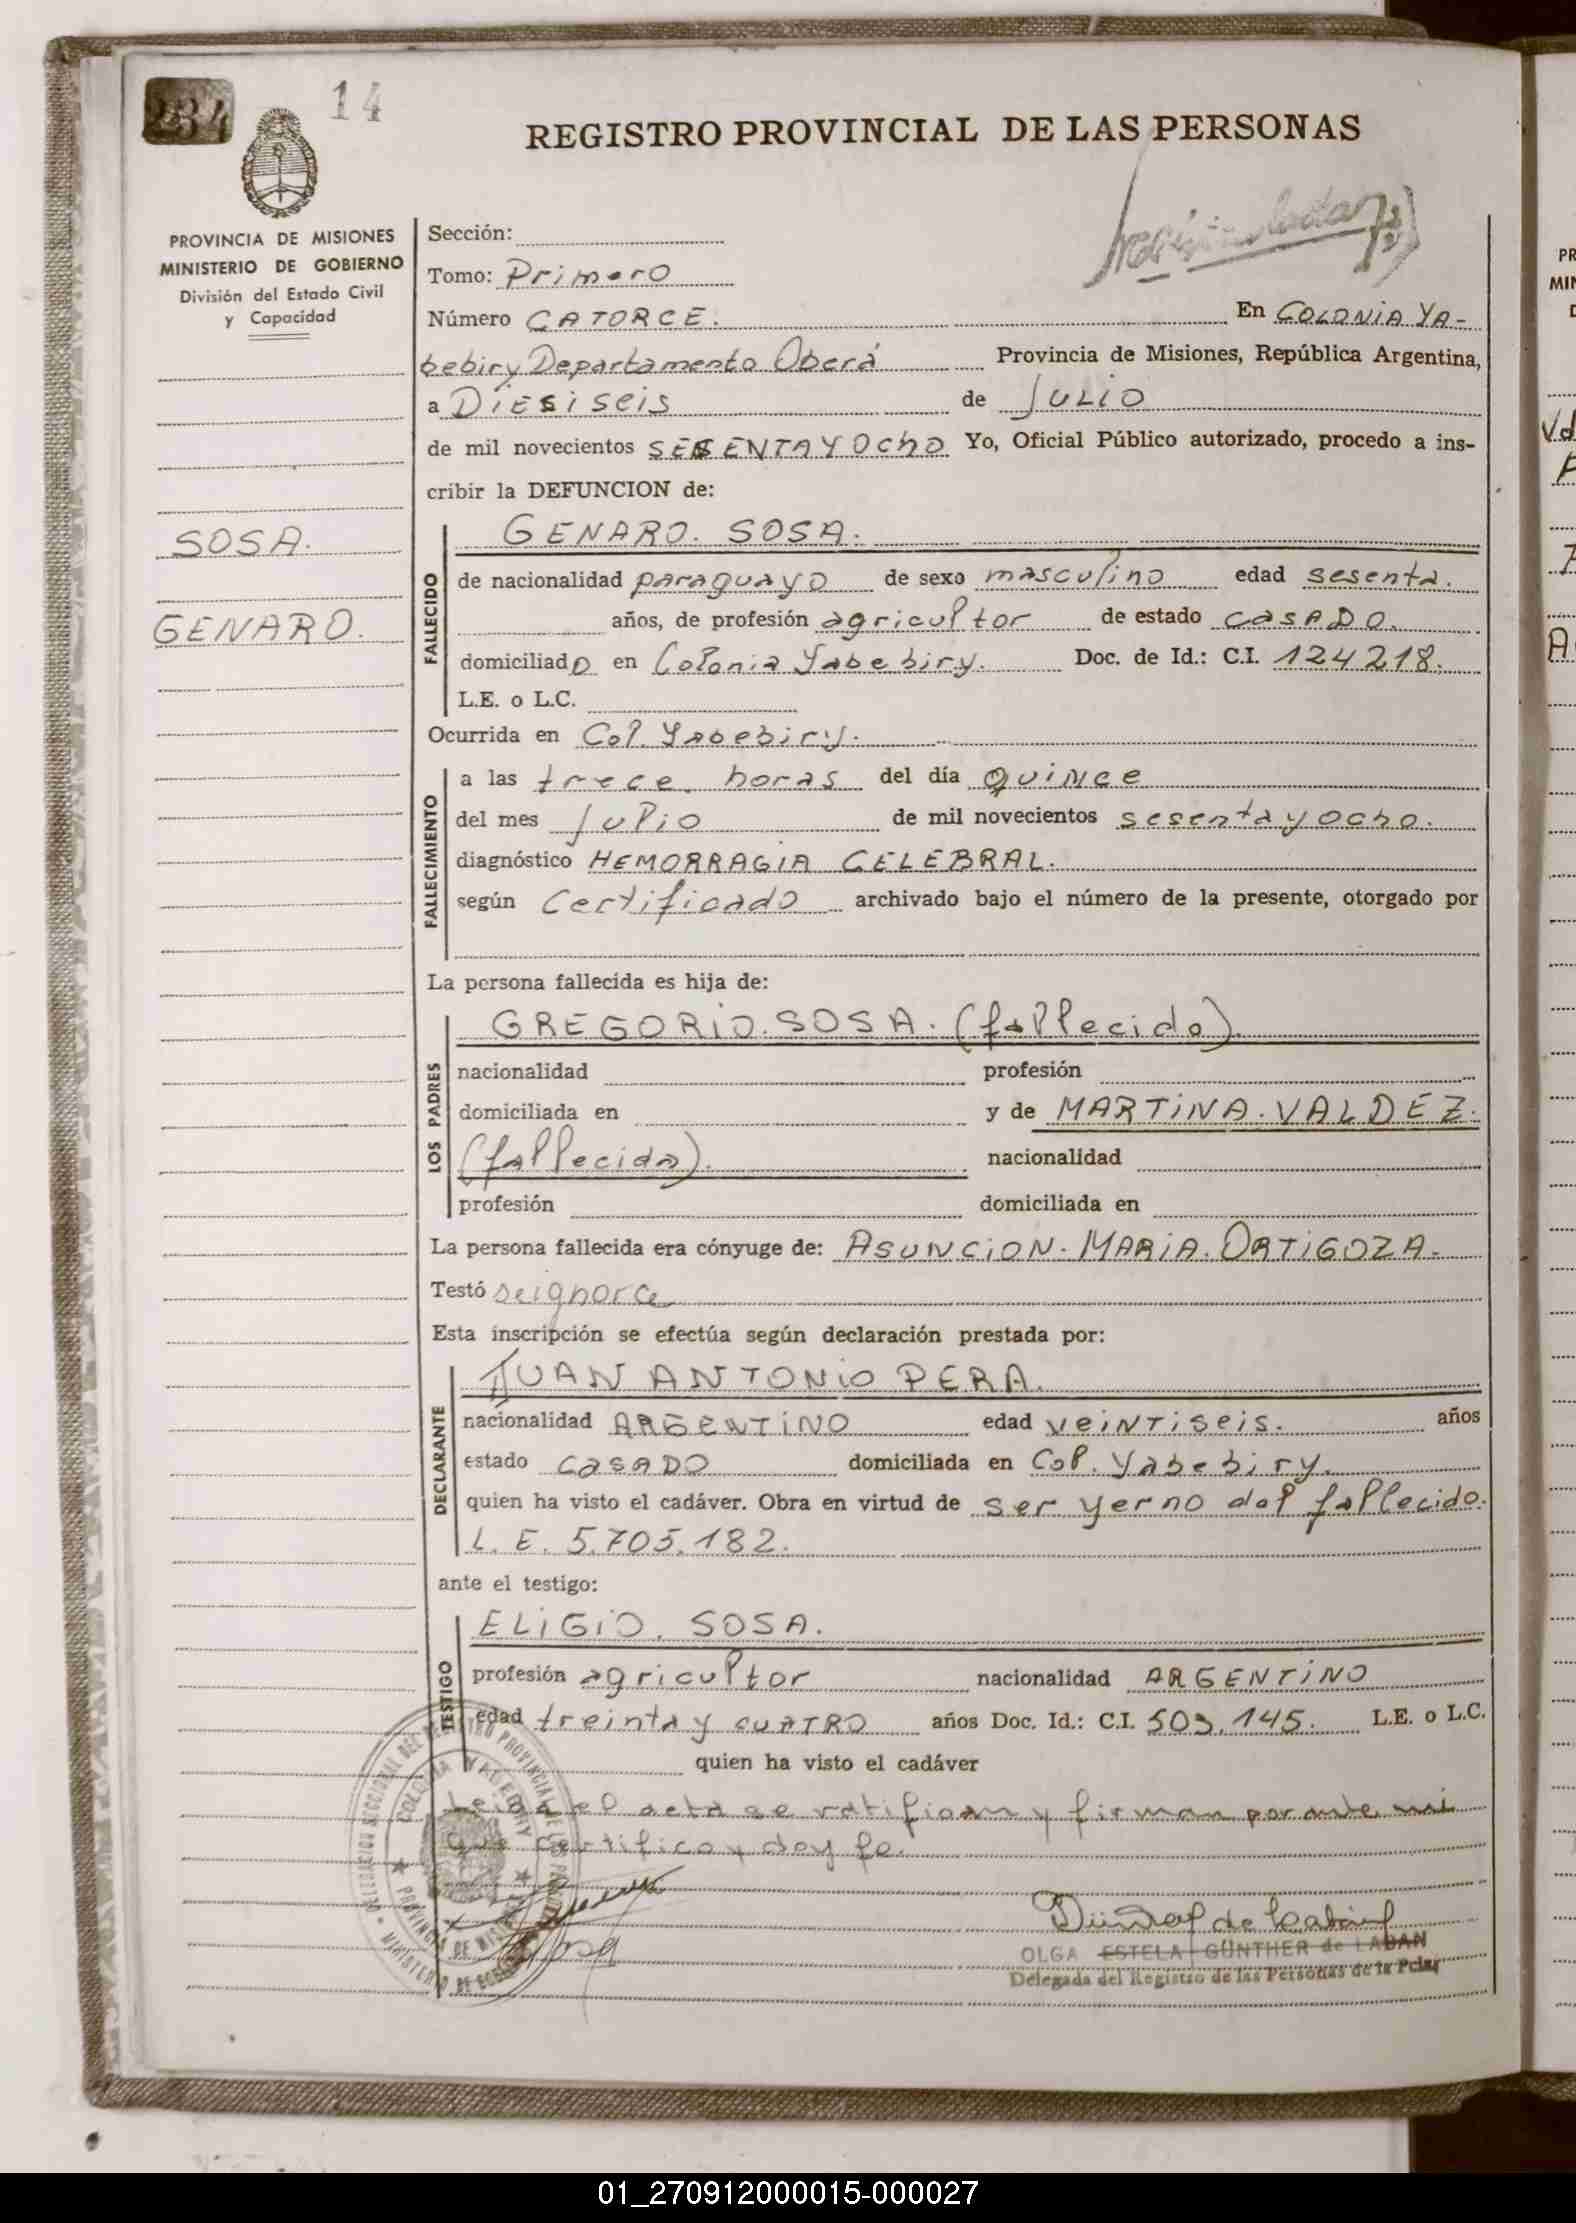 234
14
REGISTRO PROVINCIAL DE LAS PERSONAS
PROVINCIA DE MISIONES
MINISTERIO DE GOBIERNO
División del Estado Civil
y Capacidad
SOSA.
GENARO.
Sección:
Tomo: Primero
Número CATORCE. En COLONIA YA-
bebiry Departamento Oberá Provincia de Misiones, República Argentina,
a DIESISEIS de JULIO
de mil novecientos SESENTA Y OCHO Yo, Oficial Público autorizado, procedo a ins-
cribir la DEFUNCION de:
FALLECIDO
GENARO. SOSA.
de nacionalidad paraguayo de sexo masculino edad sesenta.
años, de profesión agricultor de estado CASADO.
domiciliado en Colonia Yabebiry. Doc. de Id.: C.I. 124218.
L.E. o L.C.
Ocurrida en Col. Yabebiry.
FALLECIMIENTO
a las trece. horas del día quince
del mes Julio de mil novecientos sesenta y ocho.
diagnóstico HEMORRAGIA CELEBRAL.
según Certificado archivado bajo el número de la presente, otorgado por
La persona fallecida es hija de:
LOS PADRES
GREGORIO. SOSA. (fallecido).
nacionalidad profesión
domiciliada en y de MARTINA. VALDEZ.
(fallecida). nacionalidad
profesión domiciliada en
La persona fallecida era cónyuge de: ASUNCION. MARIA. ORTIGOZA.
Testó seignorce
Esta inscripción se efectúa según declaración prestada por:
DECLARANTE
JUAN ANTONIO PERA.
nacionalidad ARGENTINO edad veintiseis. años
estado CASADO domiciliada en Col. Yabebiry.
quien ha visto el cadáver. Obra en virtud de ser yerno del fallecido.
L. E. 5.705.182.
ante el testigo:
TESTIGO
ELIGIO. SOSA.
profesión agricultor nacionalidad ARGENTINO
edad treinta y cuatro años Doc. Id.: C.I. 503.145. L.E. o L.C.
quien ha visto el cadáver
Leida el acta se ratifican y firman por ante mi
que certifico y doy fe.
Sosa
OLGA ESTELA GÜNTHER de LABAN
Delegada del Registro de las Personas de la Pcia.
01_270912000015-000027